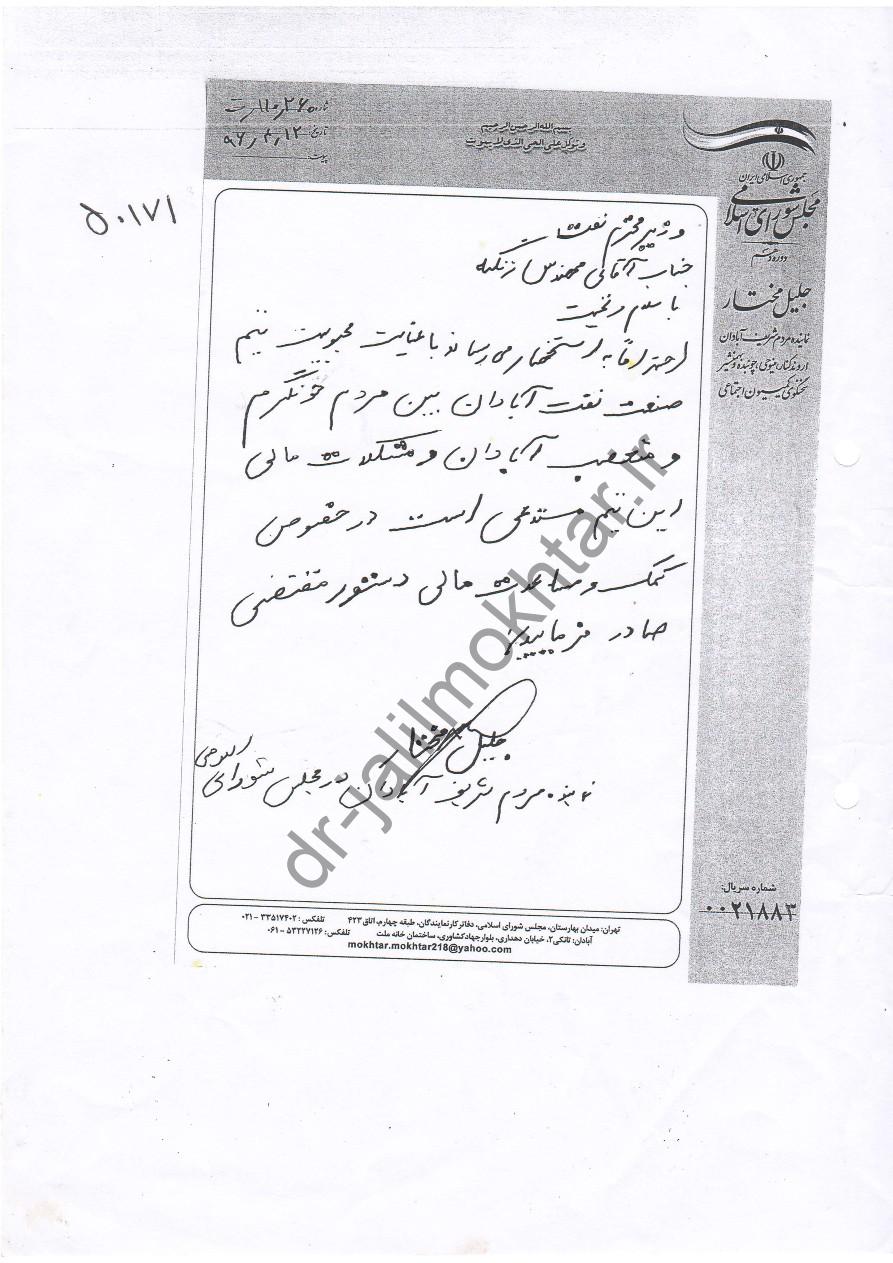 شماره: ۱۱۰۲۶۰ رت
تاریخ: ۹۶٫۳٫۱۲
پیوست:
بسم الله الرحمن الرحیم
وتوکل علی الحی الذی لا یموت
جمهوری اسلامی ایران
مجلس شورای اسلامی
دوره دهم
جلیل مختار
نماینده مردم شریف آبادان
اروندکنار، مینوحی، چوئبده و بهمنشیر
سخنگوی کمیسیون اجتماعی
۵۰۱۷۱
وزیر محترم نفت
جناب آقای مهندس زنگنه
با سلام و تحیت
احتراماً به استحضار می رساند با عنایت محبوبیت تیم
صنعت نفت آبادان بین مردم خونگرم
و متعصب آبادان و مشکلات مالی
این تیم مستدعی است در خصوص
کمک و مساعدت مالی دستور مقتضی
صادر فرمایید
جلیل مختار
نماینده مردم شریف آبادان در مجلس شورای اسلامی
dr-jalilmokhtar.ir
شماره سریال:
۰۰۲۱۸۸۳
تهران: میدان بهارستان، مجلس شورای اسلامی، دفاتر کار نمایندگان، طبقه چهارم، اتاق ۴۲۳ تلفکس: ۳۳۵۱۷۴۰۲ - ۰۲۱
آبادان: تانکی۲، خیابان دهداری، بلوار جهاد کشاورزی، ساختمان خانه ملت تلفکس: ۵۳۲۲۷۱۲۶ - ۰۶۱
mokhtar.mokhtar218@yahoo.com